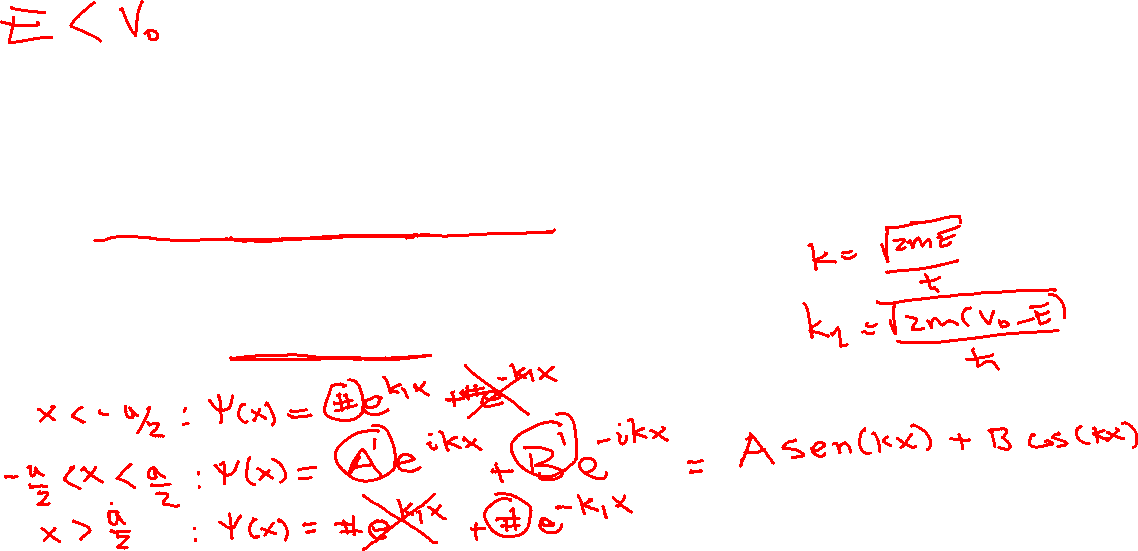 E < V₀
k = √(2mE) / ħ
k₁ = √(2m(V₀ - E)) / ħ
x < -a/2 : Ψ(x) = # e^{k₁x} + # e^{-k₁x}
-a/2 < x < a/2 : Ψ(x) = A' e^{ikx} + B' e^{-ikx} = A sen(kx) + B cos(kx)
x > a/2 : Ψ(x) = # e^{k₁x} + # e^{-k₁x}